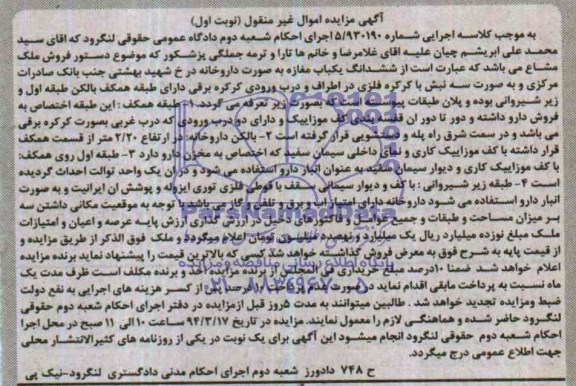 آگهی مزایده اموال غیر منقول (نوبت اول)
به موجب کلاسه اجرایی شماره ۵/۹۳۰۱۹۰ اجرای احکام شعبه دوم دادگاه عمومی حقوقی لنگرود که اقای سید
محمد علی ابریشم چیان علیه اقای غلامرضا و خانم ها تارا و ترمه جملگی پزشکپور که موضوع دستور فروش ملک
مشاع می باشد که عبارت است از ششدانگ یکباب مغازه به صورت داروخانه در خ شهید بهشتی جنب بانک صادرات
مرکزی و به صورت سه نبش با کرکره فلزی در اطراف و درب ورودی کرکره برقی دارای طبقه همکف بالکن طبقه اول و
زیر شیروانی بوده و پلان طبقات بصورت زیر تعرفه می گردد. ۱- طبقه همکف : این طبقه اختصاص به
فروش دارو داشته و دور تا دور ان قفسه بندی کف موزاییک و دارای دو درب ورودی که درب غربی بصورت کرکره برقی
می باشد و در سمت شرق راه پله و قرار گرفته است ۲- بالکن داروخانه: در ارتفاع ۲/۲۰ متر از قسمت همکف
قرار داشته با کف موزاییک کاری و نمای داخلی سیمان سفید که اختصاص به مخزن دارو دارد ۳- طبقه اول روی همکف:
با کف موزاییک کاری و دیوار سیمان سفید به عنوان انبار دارو استفاده می شود و در ان یک واحد توالت احداث گردیده
است ۴- طبقه زیر شیروانی : با کف و دیوار سیمانی سقف با قوطی فلزی توری ایزوله و پوشش ان ایرانیت و به صورت
انبار دارو استفاده می شود داروخانه دارای امتیاز آب و برق و تلفن و گاز می باشد با توجه به موقعیت مکانی داشتن سه
بر میزان مساحت و طبقات و جمیع جهات و فاکتورهای دخیل در ارزش گذاری ارزش پایه عرصه و اعیان و امتیازات
ملک مبلغ نوزده میلیارد ریال یک میلیارد و نهصد میلیون تومان اعلام میگردد و ملک فوق الذکر از طریق مزایده و
از قیمت پایه به شرح فوق به معرض فروش گذاشته خواهد شد کسی که بالاترین قیمت را پیشنهاد نماید برنده مزایده
اعلام خواهد شد ضمنا ۱۰درصد مبلغ خریداری فی المجلس از برنده مزایده اخذ و برنده مکلف است ظرف مدت یک
ماه نسبت به پرداخت مابقی اقدام نماید در صورت ۱۰درصد پس از کسر هزینه های اجرایی به نفع دولت
ضبط ومزایده تجدید خواهد شد . طالبین میتوانند به مدت ۵روز قبل ازمزایده در دفتر اجرای احکام شعبه دوم حقوقی
لنگرود حاضر شده و هماهنگی لازم را معمول نمایند. مزایده در تاریخ ۹۴/۳/۱۷ ساعت ۱۰ الی ۱۱ صبح در محل اجرا
احکام شعبه دوم حقوقی لنگرود انجام میشود این آگهی برای یک نوبت در یکی از روزنامه های کثیرالانتشار محلی
جهت اطلاع عمومی درج میگردد.
ح ۷۴۸ دادورز شعبه دوم اجرای احکام مدنی دادگستری لنگرود-نیک پی
ParsNamadData
پایگاه اطلاع رسانی مناقصه و مزایده